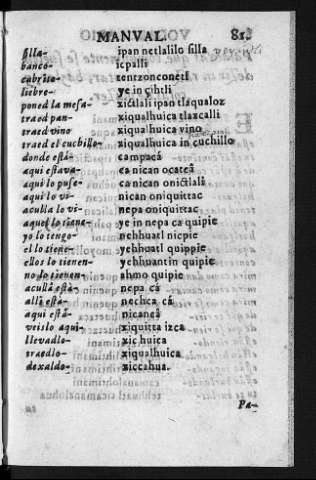 MANVAL. 81
silla- ipan netlalilo silla
banco- icpalli
cabrito- tentzonconetl
liebre- ye in çihtli
poned la mesa- xictlali ipan tlaqualoz
traed pan- xiqualhuica tlaxcalli
traed vino xiqualhuica vino
traed el cuchillo- xiqualhuica in cuchillo
donde está- campacá
aqui estava- ca nican ocateá
aqui lo puse- ca nican onictlali
aqui lo vi- nican oniquittac
aculla lo vi- nepa oniquittac
aquel lo tiene- ye in nepa ca quipie
yo lo tengo- nehhuatl nicpie
el lo tiene- yehhuatl quippie
ellos lo tienen- yehhuantin quipie
no lo tienen- ahmo quipie
acullá está- nepa cá
allí está- nechca cá
aqui está- nicancá
veislo aqui- xiquitta izca
llevadlo- xichuica
traedlo- xiqualhuica
dexaldo- xiccahua.
Pa-